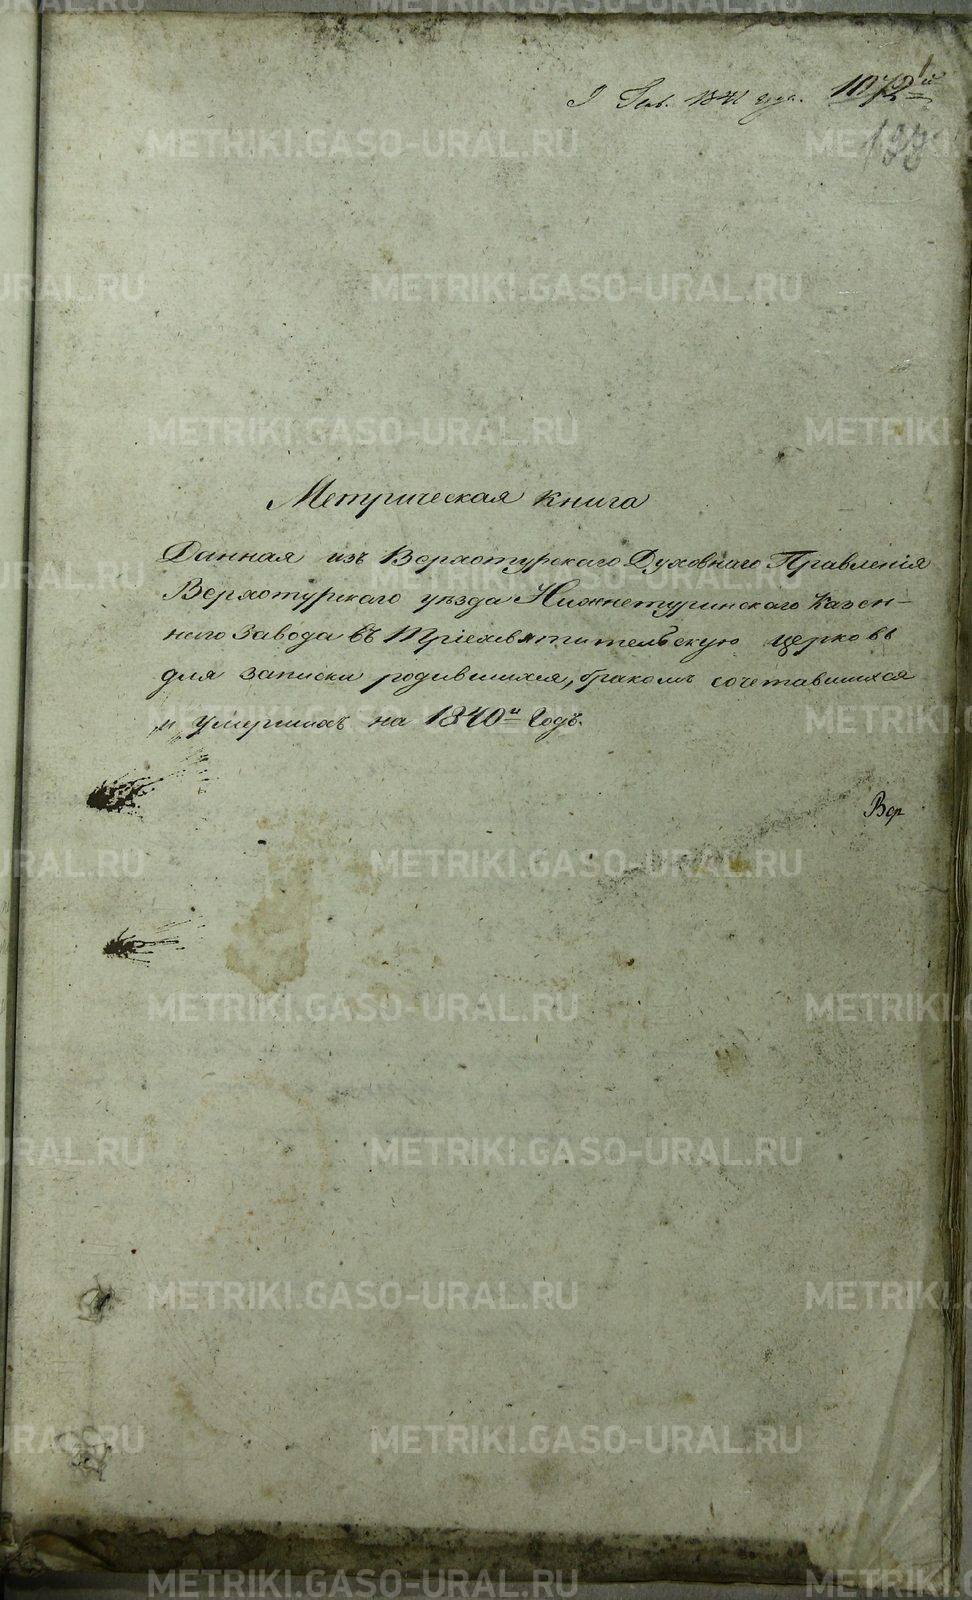 1841 года. 1072й
Метрическая книга
Данная изъ Верхотурскаго Духовнаго Правленія
Верхотурскаго уѣзда Нижнетуринскаго Казен-
наго Завода въ Трїехсвятительскую церковь
для записки родившихся, бракомъ сочетавшихся
и умершихъ на 1840й Годъ.
Вер
METRIKI.GASO-URAL.RU